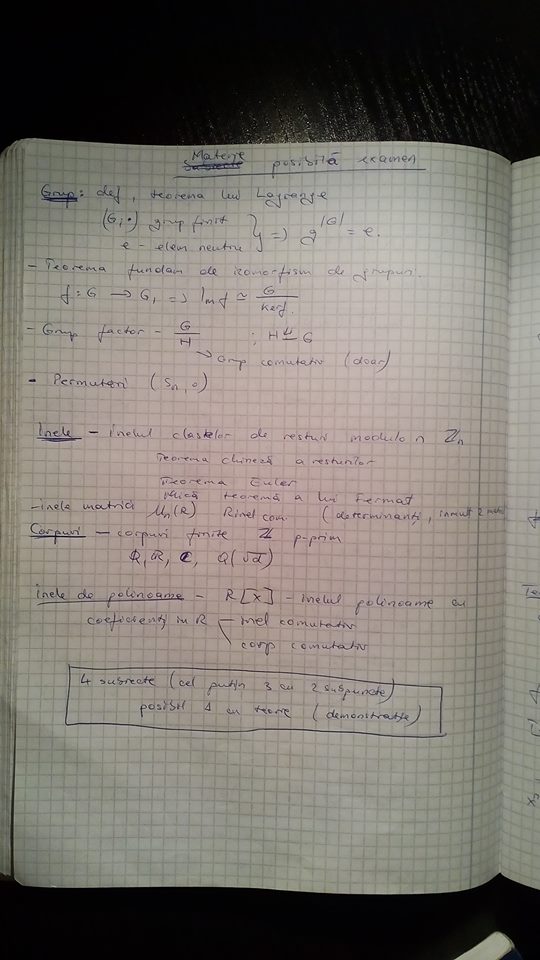 Materie posibilă examen
Grup: def, teorema lui Lagrange
(G, ·) grup finit } => g^|G| = e.
e - elem neutru
- Teorema fundam de izomorfism de grupuri.
f: G → G₁ => Imf ≃ G/Kerf
- Grup factor - G/H ; H ⊴ G
→ Grup comutativ (doar)
- Permutări (Sn, ∘)
Inele - inelul claselor de resturi modulo n ℤn
Teorema chineză a resturilor
Teorema Euler
Mică teoremă a lui Fermat
- inele matrici Mn(R) R inel com (determinanți, inmult 2
Corpuri - corpuri finite ℤ p-prim
Q, R, C, Q(√d)
inele de polinoame - R[X] - inelul polinoame cu
coeficienți in R - inel comutativ
corp comutativ
4 subiecte (cel puțin 3 cu 2 subpuncte)
posibil 1 cu teorie (demonstrație)